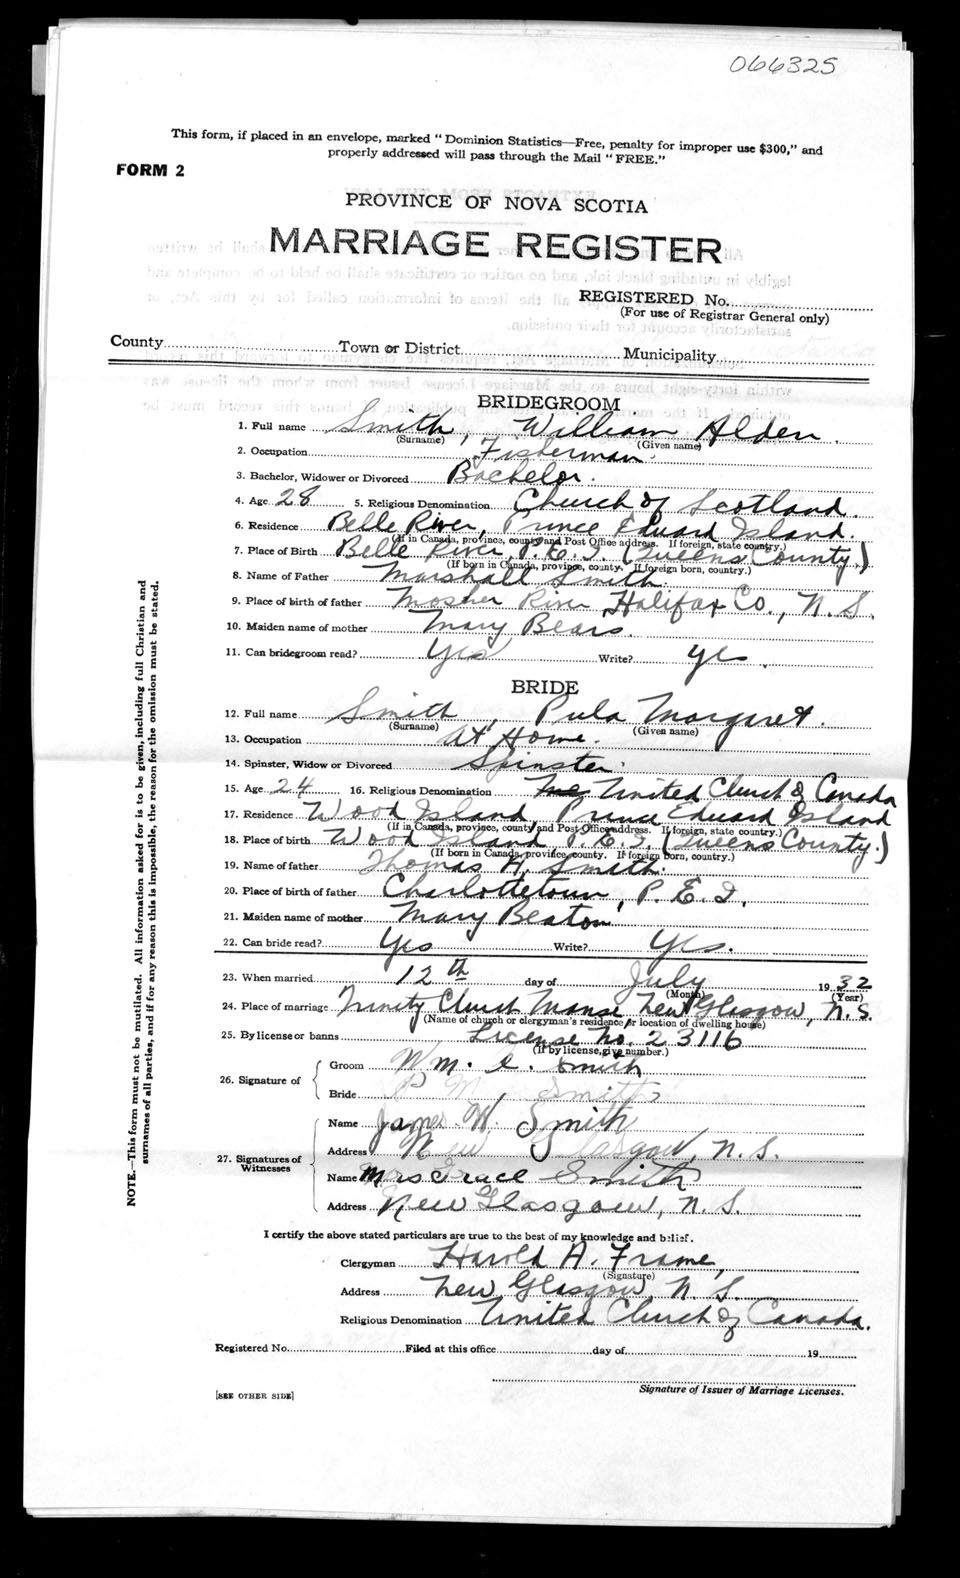 066325
This form, if placed in an envelope, marked "Dominion Statistics—Free, penalty for improper use $300," and
properly addressed will pass through the Mail "FREE."
FORM 2
PROVINCE OF NOVA SCOTIA
MARRIAGE REGISTER
REGISTERED No.
(For use of Registrar General only)
County Town or District Municipality
BRIDEGROOM
1. Full name Smith, William Alden.
(Surname) (Given name)
2. Occupation Fisherman.
3. Bachelor, Widower or Divorced Bachelor.
4. Age 28 5. Religious Denomination Church of Scotland.
6. Residence Belle River, Prince Eduard Island.
(If in Canada, province, county and Post Office address. If foreign, state country.)
7. Place of Birth Belle River, P.E.I. (Queens County.)
(If born in Canada, province, county. If foreign born, country.)
8. Name of Father Marshall Smith.
9. Place of birth of father Mosher River, Halifax Co., N.S.
10. Maiden name of mother Mary Bears.
11. Can bridegroom read? Yes Write? Yes.
BRIDE
12. Full name Smith, Pula Margaret.
(Surname) (Given name)
13. Occupation At Home.
14. Spinster, Widow or Divorced Spinster.
15. Age 24 16. Religious Denomination United Church of Canada
17. Residence Wood Island, Prince Eduard Island
(If in Canada, province, county and Post Office address. If foreign, state country.)
18. Place of birth Wood Island P.E.I. (Queens County.)
(If born in Canada, province county. If foreign born, country.)
19. Name of father Thomas H. Smith.
20. Place of birth of father Charlottetown, P.E.I.
21. Maiden name of mother Mary Beaton.
22. Can bride read? Yes Write? Yes.
23. When married 12th day of July 1932
(Month) (Year)
24. Place of marriage Trinity Church Manse New Glasgow, N.S.
(Name of church or clergyman's residence or location of dwelling house)
25. By license or banns License No. 23116
(If by license, give number.)
26. Signature of
Groom Wm. A. Smith
Bride P M Smith
27. Signatures of Witnesses
Name James W. Smith
Address New Glasgow, N.S.
Name Mrs Grace Smith
Address New Glasgow, N.S.
I certify the above stated particulars are true to the best of my knowledge and belief.
Clergyman Harold A. Frame,
(Signature)
Address New Glasgow, N.S.
Religious Denomination United Church of Canada.
Registered No. Filed at this office day of 19
Signature of Issuer of Marriage Licenses.
[SEE OTHER SIDE]
NOTE.—This form must not be mutilated. All information asked for is to be given, including full Christian and
surnames of all parties, and if for any reason this is impossible, the reason for the omission must be stated.